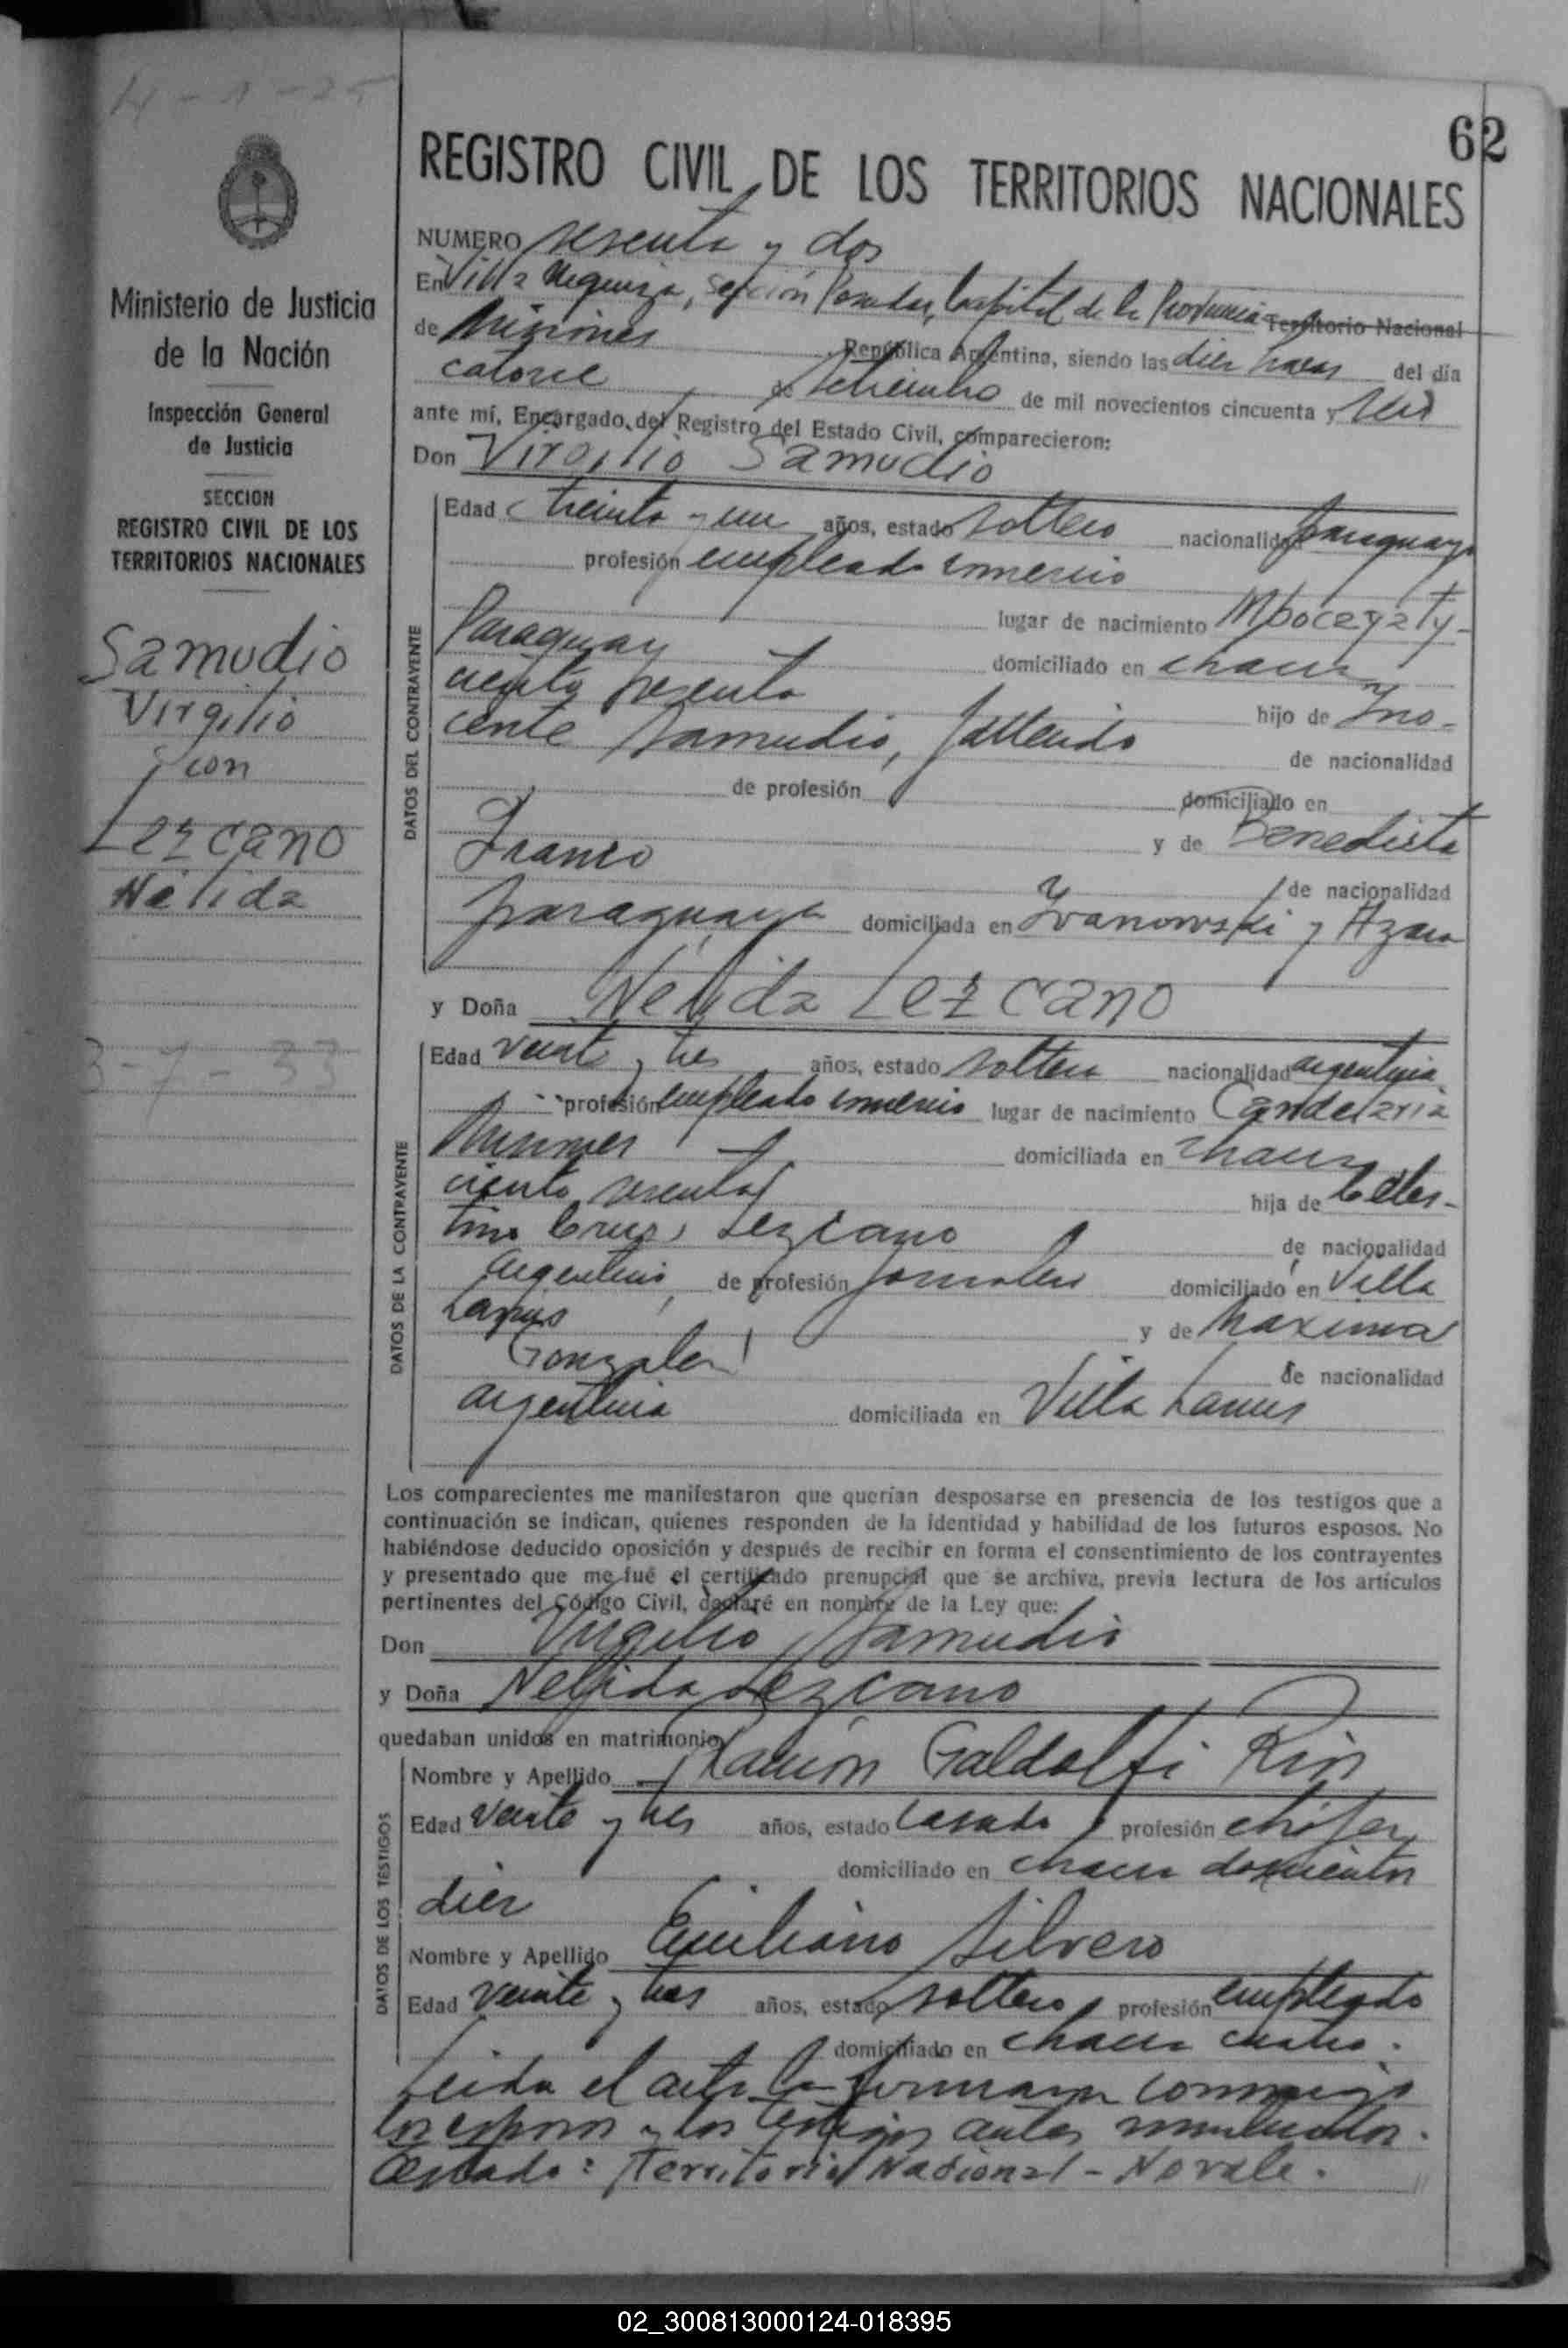 4-1-25
62
Ministerio de Justicia
de la Nación
Inspección General
de Justicia
SECCION
REGISTRO CIVIL DE LOS
TERRITORIOS NACIONALES
Samudio
Virgilio
con
Lezcano
Nélida
3-7-33
REGISTRO CIVIL DE LOS TERRITORIOS NACIONALES
NUMERO sesenta y dos
En Villa Urquiza, Sección Posadas, Capital de la Provincia Territorio Nacional
de Misiones República Argentina, siendo las diez horas del día
catorce de setiembre de mil novecientos cincuenta y seis
ante mí, Encargado del Registro del Estado Civil, comparecieron:
Don Virgilio Samudio
DATOS DEL CONTRAYENTE
Edad treinta y un años, estado soltero nacionalidad paraguayo
profesión empleado comercio
lugar de nacimiento Mbocayaty-
Paraguay domiciliado en chacra
ciento sesenta hijo de Ino-
cente Samudio, fallecido de nacionalidad
de profesión domiciliado en
y de Benedicta
Franco de nacionalidad
paraguaya domiciliada en Ivanowski y Azara
y Doña Nélida Lezcano
DATOS DE LA CONTRAYENTE
Edad veinte y tres años, estado soltera nacionalidad argentina
profesión empleado comercio lugar de nacimiento Candelaria
Misiones domiciliada en chacra
ciento sesenta hija de Celes-
tino Cruz Lezcano de nacionalidad
argentino de profesión jornalero domiciliado en Villa
Lanus y de Maxima
Gonzalez de nacionalidad
argentina domiciliada en Villa Lanus
Los comparecientes me manifestaron que querían desposarse en presencia de los testigos que a
continuación se indican, quienes responden de la identidad y habilidad de los futuros esposos. No
habiéndose deducido oposición y después de recibir en forma el consentimiento de los contrayentes
y presentado que me fué el certificado prenupcial que se archiva, previa lectura de los artículos
pertinentes del Código Civil, declaré en nombre de la Ley que:
Don Virgilio Samudio
y Doña Nelida Lezcano
quedaban unidos en matrimonio
DATOS DE LOS TESTIGOS
Nombre y Apellido Ramón Galdolfi Rios
Edad veinte y tres años, estado casado profesión chófer
domiciliado en chacra doscientos
diez
Nombre y Apellido Emiliano Silvero
Edad veinte y tres años, estado soltero profesión empleado
domiciliado en chacra cuatro.
Leida el acta la firmaron conmigo
los esposos y los testigos antes nombrados.
Testado: Territorio Nacional - No vale.
02_300813000124-018395